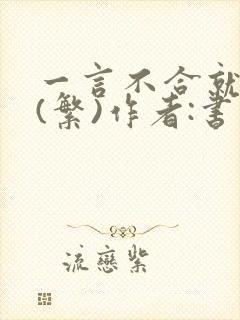 一言不合就
(繁)作者:書
流戀紫